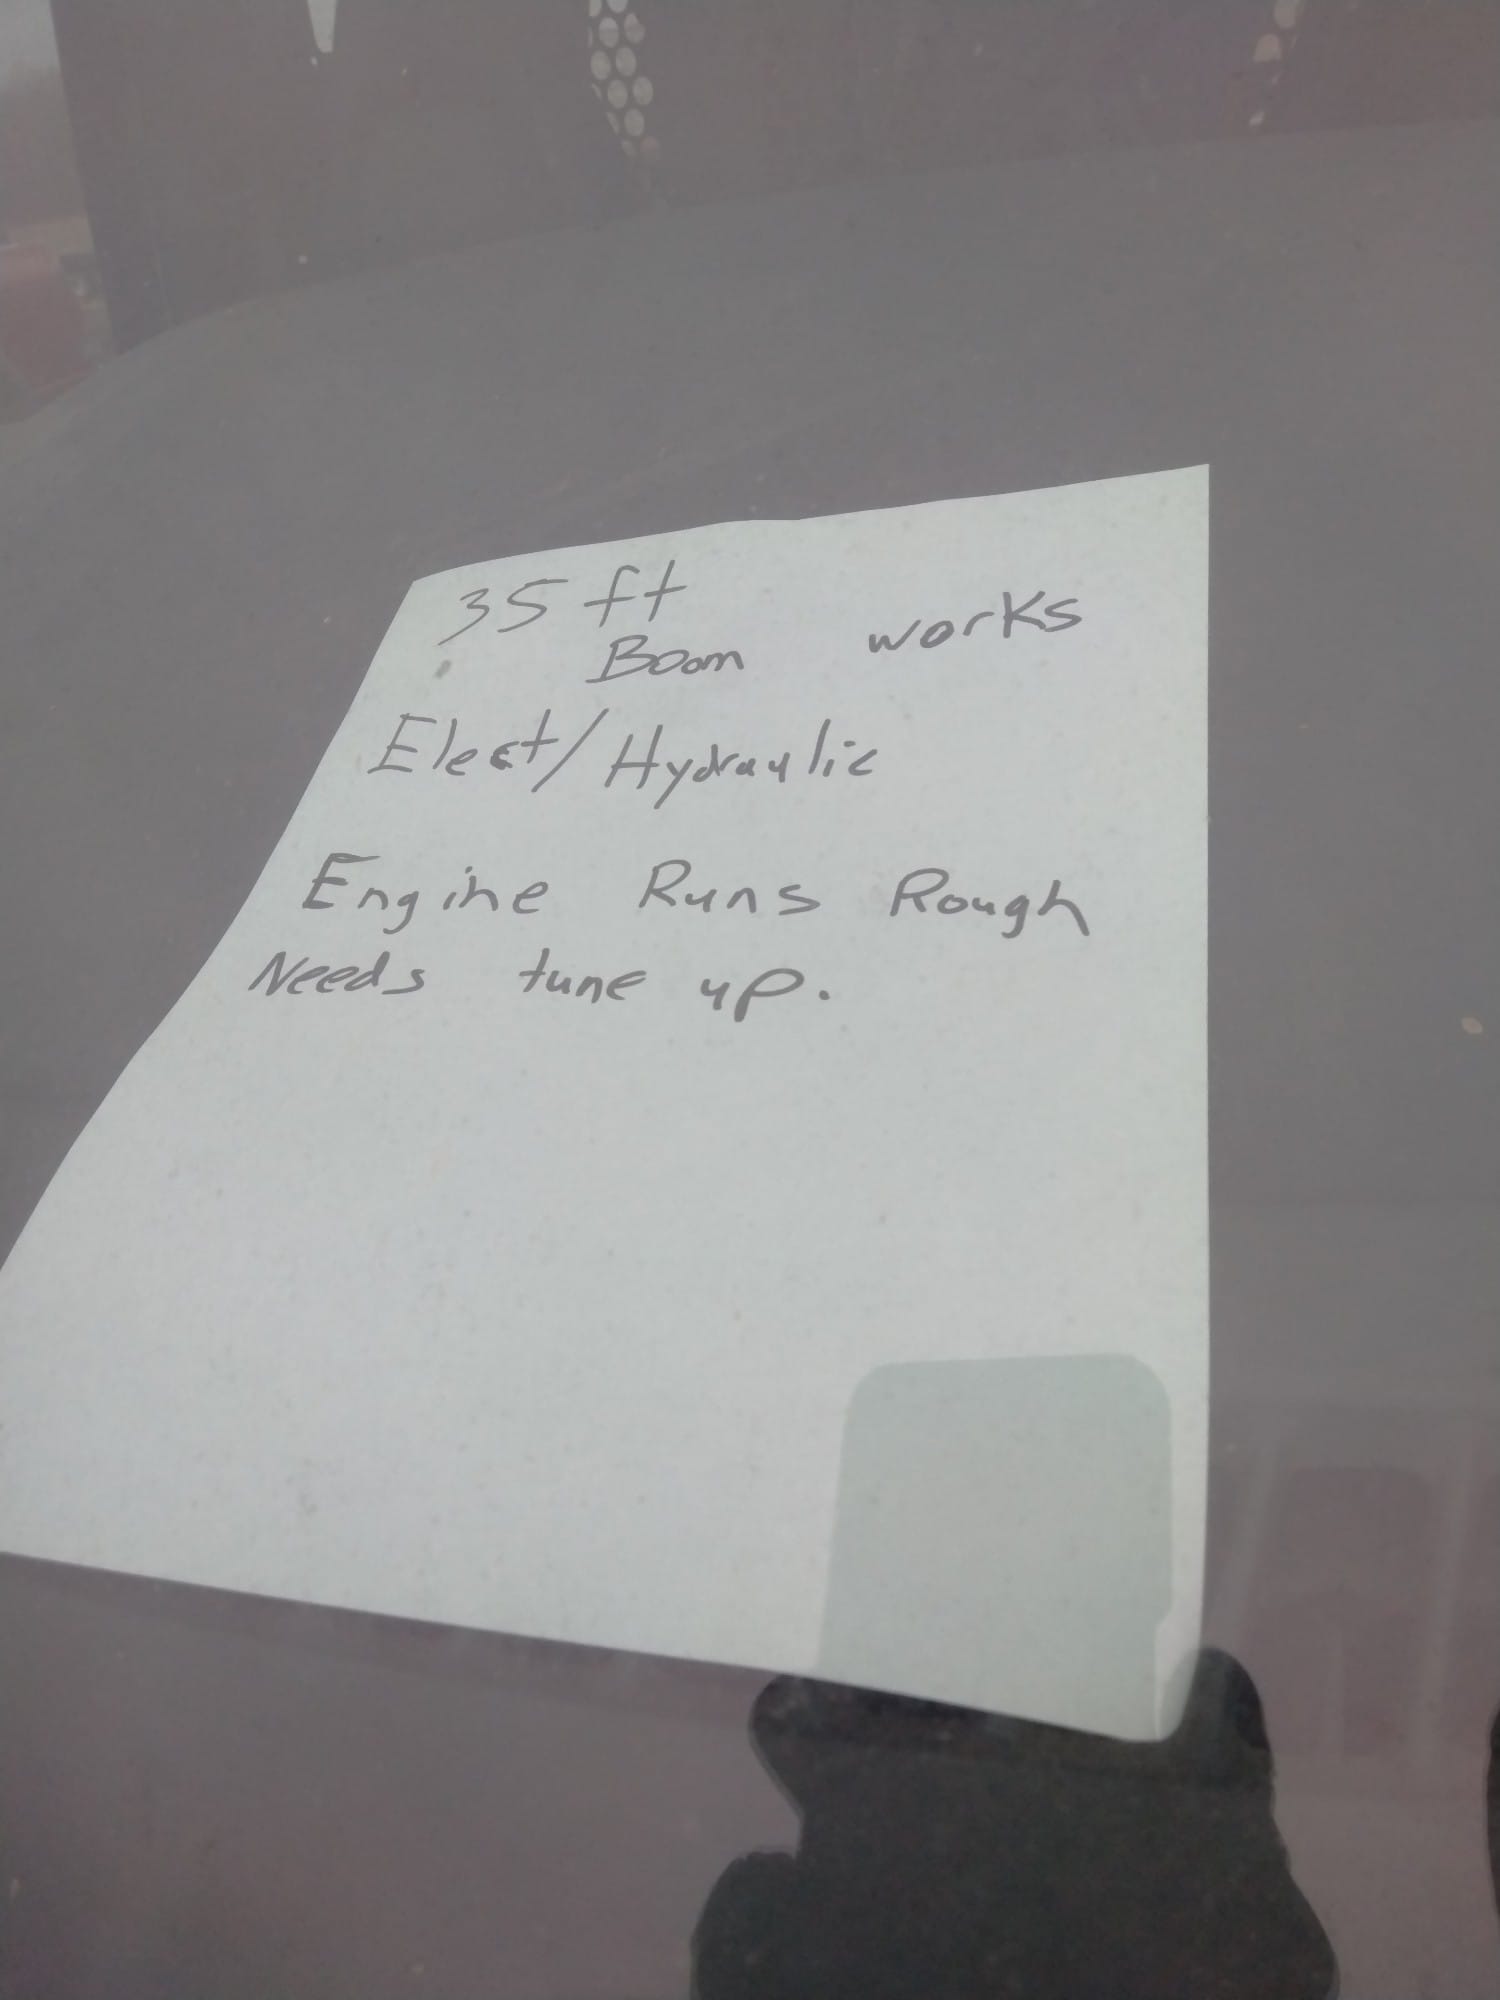 35 ft
Boom works
Elect/Hydraulic
Engine Runs Rough
Needs tune up.